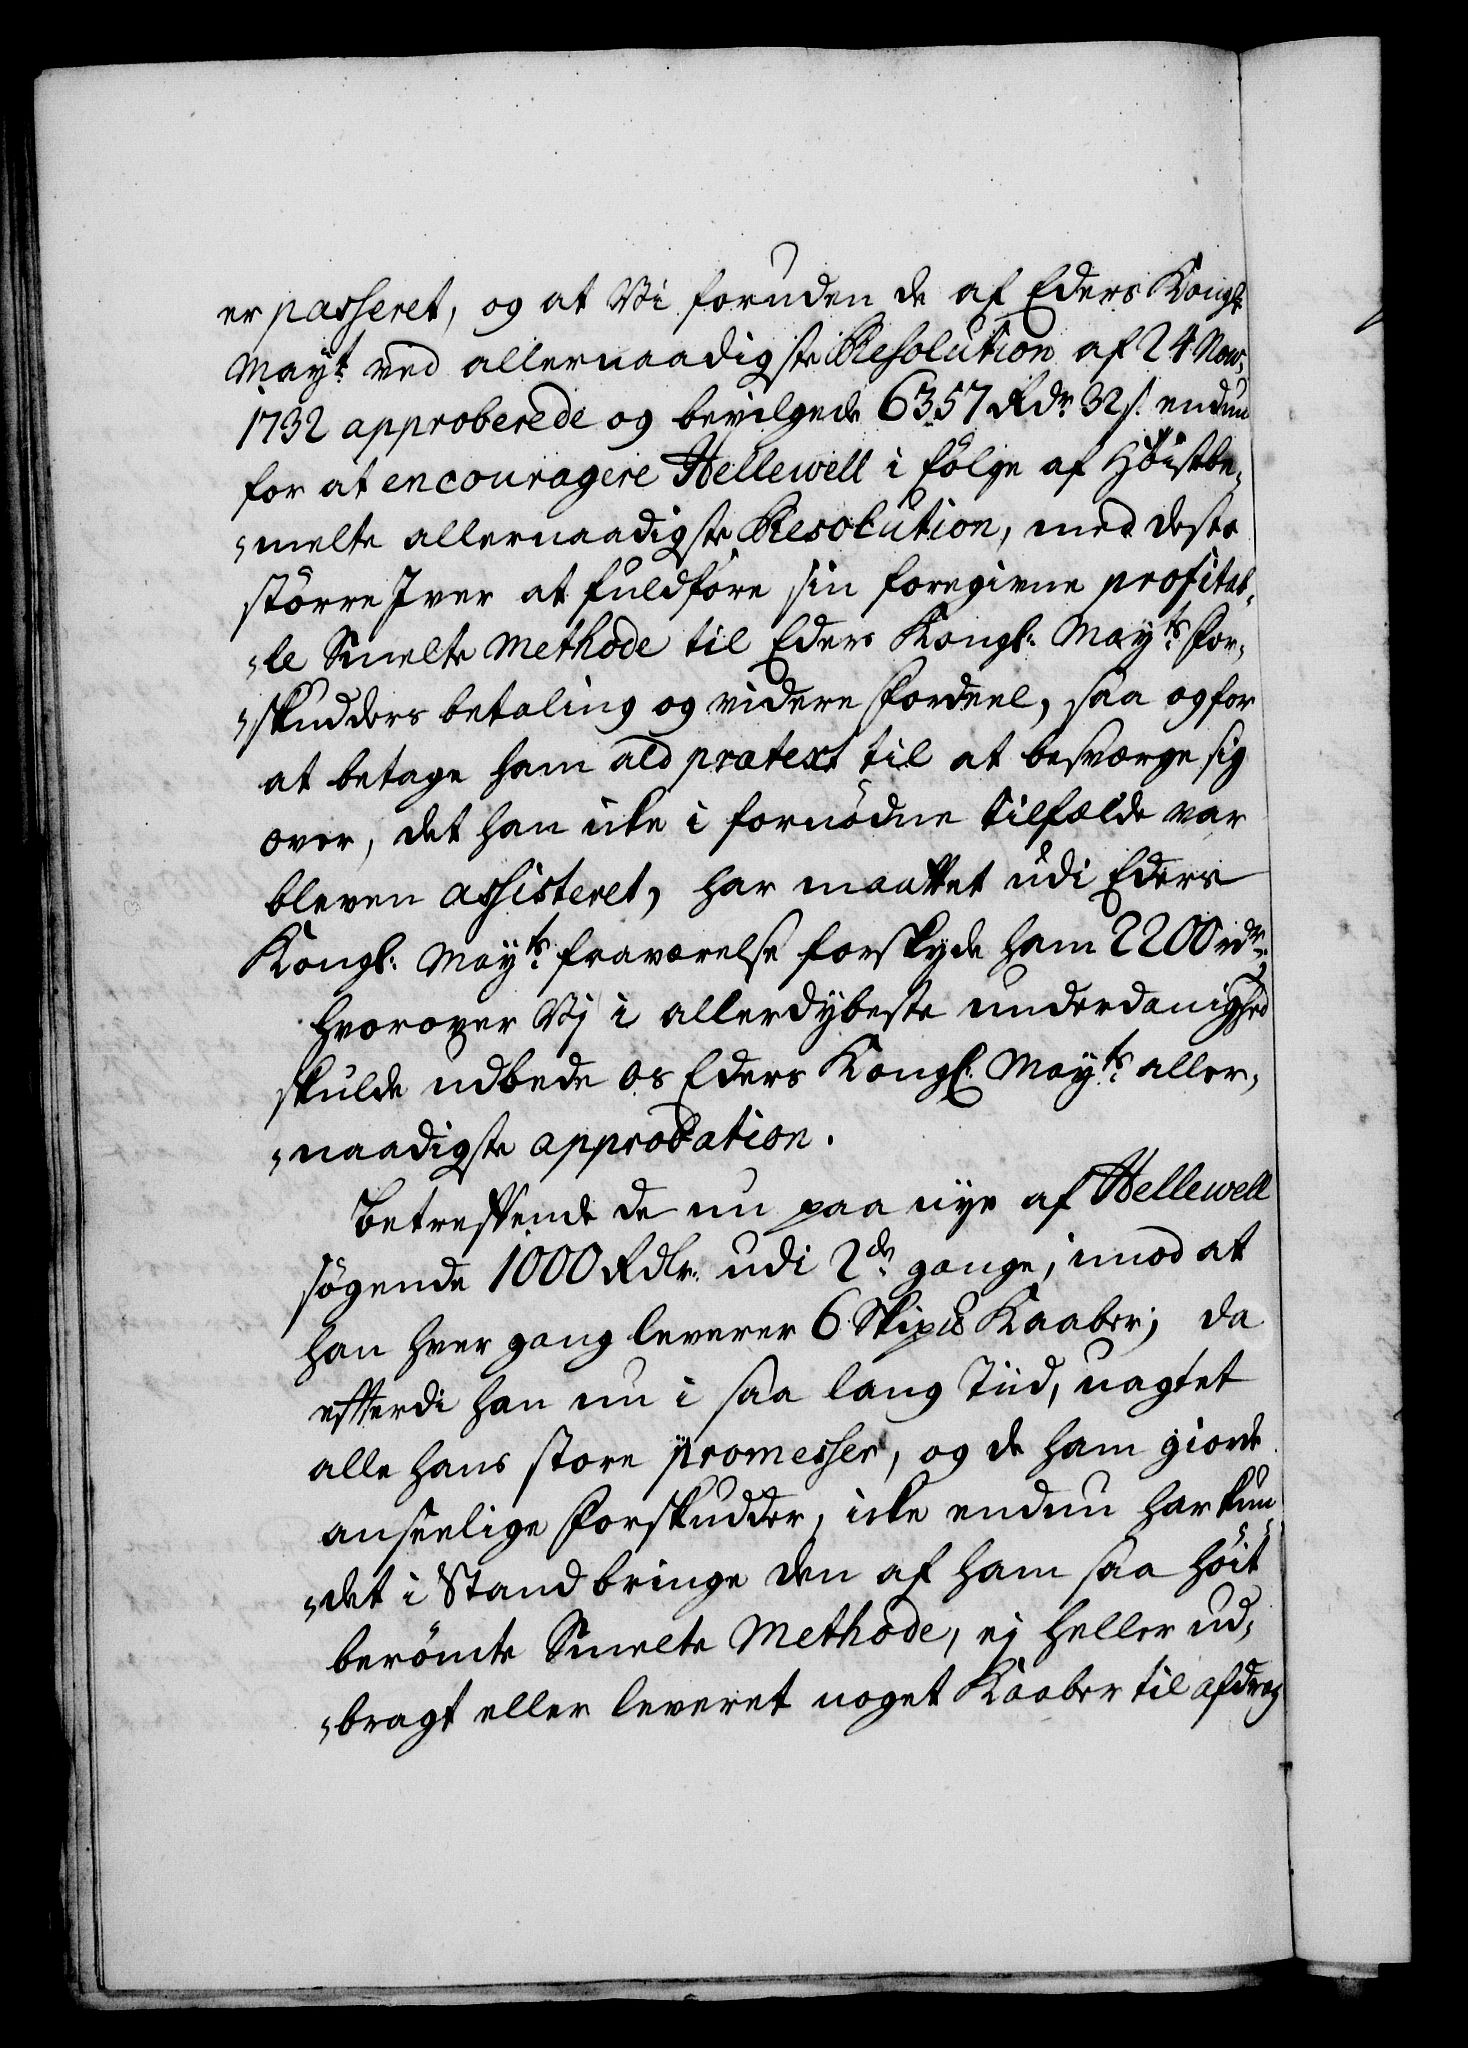 er passeret, og at Vi foruden de af Eders Kongl:
Mayt: ved allernaadigste Resolution af 24 Nov:
1732 approberede og bevilgede 6357 Rdr 32 s. endnu
for at encouragere Hellewell i følge af Høistbe„
„melte allernaadigste Resolution, med deste
større Jver at fuldføre sin foregivne profitab„
„le Smelte Methode til Eders Kongl: Mayts: For„
„skudders betaling og videre Fordeel, saa og for
at betage ham ald prætext til at besværge sig
over, det han icke i fornødne tilfælde var
bleven assisteret, har maattet udi Eders
Kongl: Mayts: fraværelse forskyde ham 2200 rdr:,
hvorover Vj i allerdybeste underdanighed
skulde udbede os Eders Kongl: Mayts: aller„
„naadigste approbation.
Betreffende de nu paa nye af Hellewell
søgende 1000 Rdlr: udi 2de gange, imod at
han hver gang leverer 6 Skip℔ Kaaber; da
efterdi han nu i saa lang Tiid, uagtet
alle hans store promesser, og de ham giorde
anseelige Forskudder, icke endnu har kun„
„det i Stand bringe den af ham saa høit
berømte Smelte Methode, ej heller ud„
„bragt eller leveret noget Kaaber til afdrag